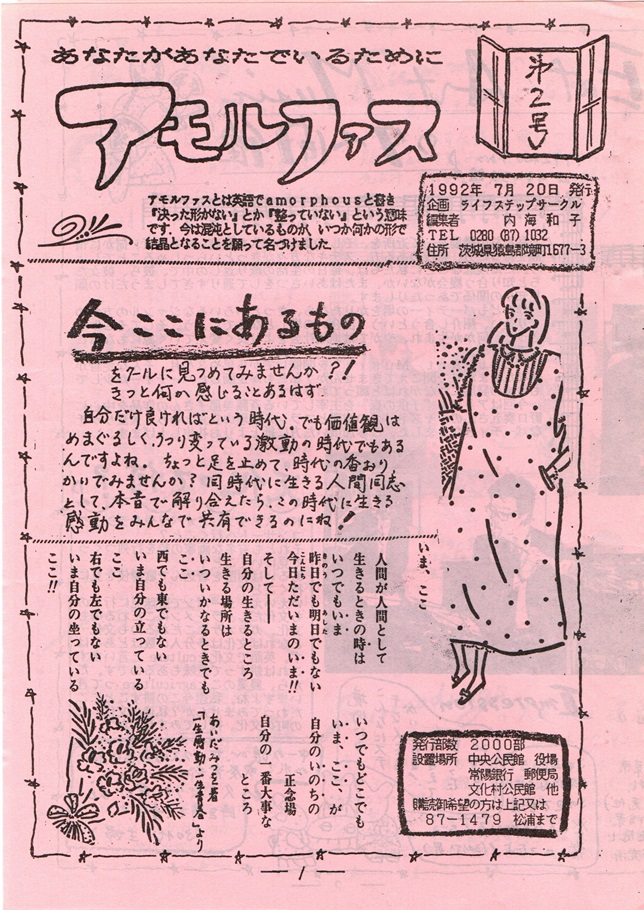 あなたがあなたでいるために
アモルファス
第2号
アモルファスとは英語でamorphousと書き
『決った形がない』とか『整っていない』という意味
です。今は混沌としているものが、いつか何かの形で
結晶となることを願って名づけました
1992年 7月 20日 発行
企画 ライフステップサークル
編集者 内海和子
TEL 0280 (87) 1032
住所 茨城県猿島郡境町1677-3
今ここにあるもの
をクールに見つめてみませんか?!
きっと何か感じることあるはず
自分だけ良ければという時代。でも価値観は
めまぐるしくうつり変っている激動の時代でもある
んですよね。ちょっと足を止めて、時代の香おり
かいでみませんか?同時代に生きる人間同志
として、本音で解り合えたら、この時代に生きる
感動をみんなで共有できるのにね!
いま、ここ
人間が人間として
生きるときの時は
いつでもいま
昨日でも明日でもない
きのう あした
今日ただいまのいま!!
こんにち
そして――
自分の生きるところ
生きる場所は
いついかなるときでも
ここ
西でも東でもない
いま自分の立っている
ここ
右でも左でもない
いま自分の坐っている
ここ!!
いつでもどこでも
いま、ここ、が
自分のいのちの
正念場
自分の一番大事な
ところ
あいだみつを著
「一生感動一生青春」より
発行部数 2000部
設置場所 中央公民館 役場
常陽銀行 郵便局
文化村公民館 他
購読御希望の方は上記又は
87-1479 松浦まで
1